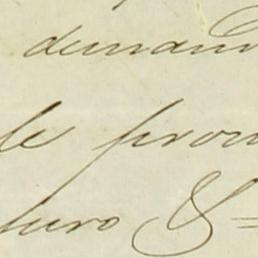 demand
le prov
turo &=